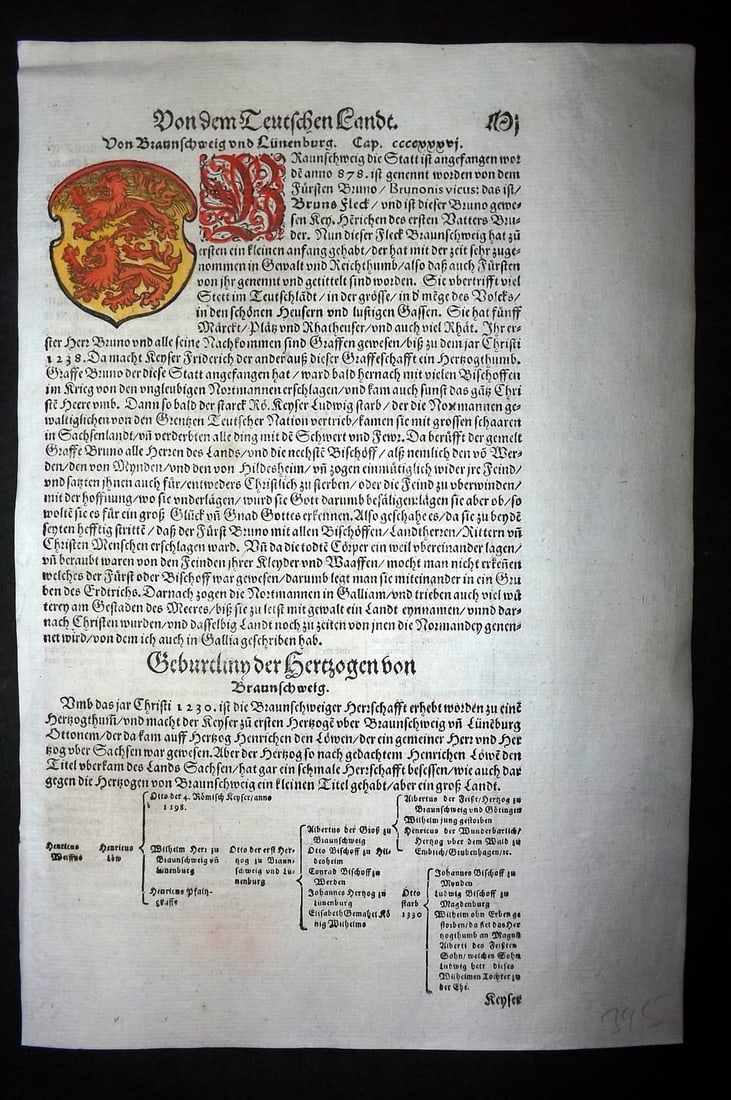 Von dem Teutschen Landt.
Von Braunschweig vnd Lünenburg. Cap. ccccxxxvj.
BRaunschweig die Statt ist angefangen wor
dē anno 878. ist genennt worden von dem
Fürsten Bruno / Brunonis vicus: das ist /
Bruns Fleck / vnd ist dieser Bruno gewe-
sen Key. Hērichen des ersten Vatters Bru-
der. Nun dieser Fleck Braunschweig hat zů
ersten ein kleinen anfang gehabt / der hat mit der zeit sehr zuge-
nommen in Gewalt vnd Reichthumb / also daß auch Fürsten
von jhr genennt vnd getittelt sind worden. Sie vbertrifft viel
Stett im Teutschlādt / in der grösse / in d' mēge des Volcks /
in den schönen Heusern vnd lustigen Gassen. Sie hat fünff
Märckt / Plätz vnd Rhatheuser / vnd auch viel Rhät. Jhr er-
ster Herr Bruno vnd alle seine Nachkommen sind Graffen gewesen / biß zu dem jar Christi
1238. Da macht Keyser Friderich der ander auß dieser Graffeschafft ein Hertzogthumb.
Graffe Bruno der diese Statt angefangen hat / ward bald hernach mit vielen Bischoffen
im Krieg von den vngleubigen Nortmannen erschlagen / vnd kam auch sunst das gātz Chri
stē Heere vmb. Dann so bald der starck Rö. Keyser Ludwig starb / der die Normannen ge-
waltiglichen von den Grentzen Teutscher Nation vertrieb / kamen sie mit grossen schaaren
in Sachsenlandt / vñ verderbten alle ding mit dē Schwert vnd Fewr. Da berüfft der gemelt
Graffe Bruno alle Herren des Lands / vnd die nechstē Bischöff / alß nemlich den vō Wer-
den / den von Mynden / vnd den von Hildesheim / vñ zogen einmütiglich wider jre Feind /
vnd satzten jhnen auch für / entweders Christlich zu sterben / oder die Feind zu vberwinden /
mit der hoffnung / wo sie vnderlägen / wurd sie Gott darumb besäligen: lägen sie aber ob / so
woltē sie es für ein groß Glück vñ Gnad Gottes erkennen. Also geschahe es / da sie zu beydē
seyten hefftig strittē / daß der Fürst Bruno mit allen Bischöffen / Landtherren / Rittern vñ
Christen Menschen erschlagen ward. Vñ da die todtē Cörper ein weil vbereinander lagen /
vñ beraubt waren von den Feinden jhrer Kleyder vnd Waaffen / mocht man nicht erkeñen
welches der Fürst oder Bischoff war gewesen / darumb legt man sie miteinander in ein Gru
ben des Erdtrichs. Darnach zogen die Nortmannen in Galliam / vnd trieben auch viel wü
terey am Gestaden des Meeres / biß sie zu letst mit gewalt ein Landt eynnamen / vnnd dar-
nach Christen wurden / vnd dasselbig Landt noch zu zeiten von jnen die Normandey genen-
net wird / von dem ich auch in Gallia geschriben hab.
Geburtliny der Hertzogen von
Braunschweig.
Vmb das jar Christi 1230. ist die Braunschweiger Herrschafft erhebt worden zu einē
Hertzogthuṁ / vnd macht der Keyser zů ersten Hertzogē vber Braunschweig vñ Lünēburg
Ottonem / der da kam auff Hertzog Henrichen den Löwen / der ein gemeiner Herr vnd Her
tzog vber Sachsen war gewesen. Aber der Hertzog so nach gedachtem Henrichen Löwē den
Titel vberkam des Lands Sachsen / hat gar ein schmale Herrschafft besessen / wie auch dar
gegen die Hertzogen von Braunschweig ein kleinen Titel gehabt / aber ein groß Landt.
Henricus
Henricus
Löw
Otto der 4. Römisch Keyser / anno
1198.
Wilhelm Hertz zu
Braunschweig vñ
Lunenburg
Henricus Pfaltz-
graffe
Otto der erst Her-
tzog zu Braun-
schweig vnd Lu-
nenburg
Albertus der Groß zu
Braunschweig
Otto Bischoff zu Hil-
desheim
Conrad Bischoff zu
Werden
Johannes Hertzog zu
Lunenburg
Elisabeth Gemahel Kö
nig Wilhelms
Albertus der Feißt / Hertzog zu
Braunschweig vnd Götingen
Wilhelm jung gestorben
Henricus der Wunderbarlich /
Hertzog vber dem Wald zu
Embich / Grubenhagen / rc.
Otto
starb
1330
Johannes Bischoff zu
Mynden
Ludwig Bischoff zu
Magdenburg
Wilhelm ohn Erben ge
storben / da fiel das Her
tzogthumb an Magnū
Alberti des Feißten
Sohn / welches Sohn
Ludwig hett dieses
Wilhelmen Tochter zu
der Ehe.
Keyser